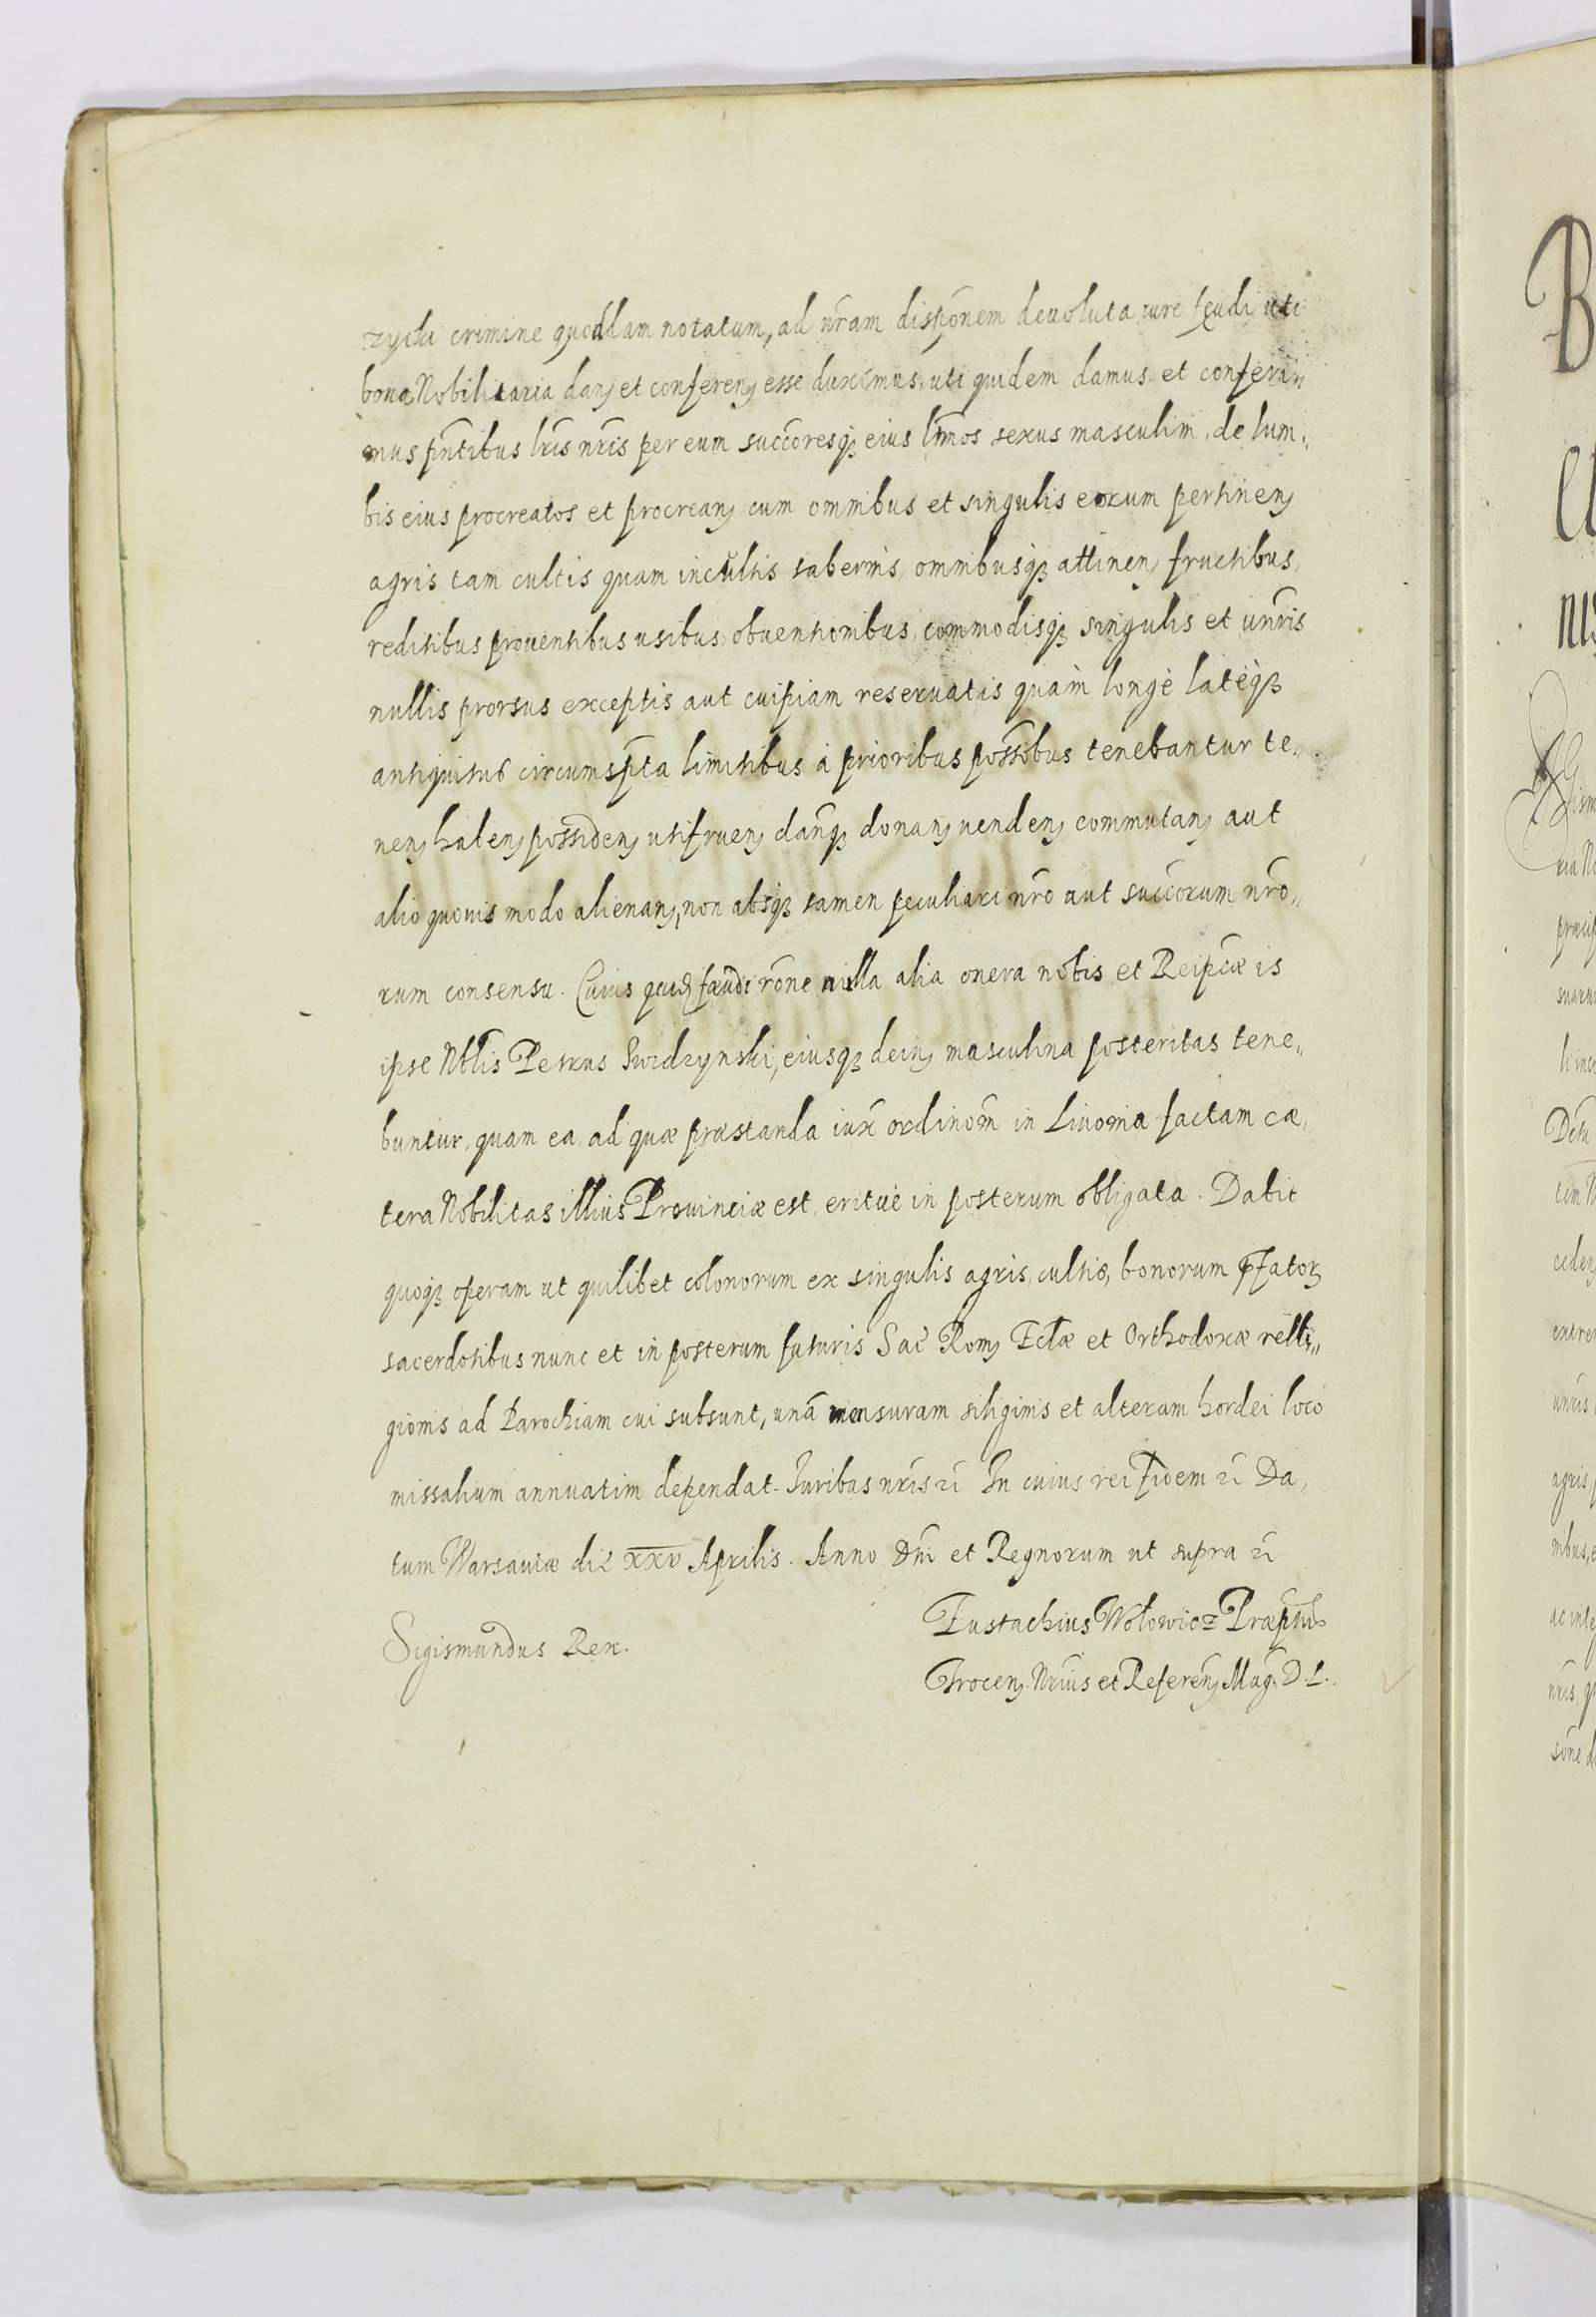 crimine quoddam notatum, ad nr̄am dispōnem deuoluta iure feudi uti
bona Nobilitaria danꝫ et conferenꝫ esse duximus, uti quidem damus et conferi„
mus pn̄tibus lr̄is nr̄is per eum succ̄oresqꝫ eius lt̄mos sexus masculini, de lum„
bis eius procreatos et procreanꝫ cum omnibus et singulis eorum pertinenꝫ
agris tam cultis quam incultis tabernis omnibusqꝫ attinenꝫ fructibus,
reditibus prouentibus usibus, obuentionibus, commodisqꝫ singulis et uniu̅ris
nullis prorsus exceptis aut cuipiam reseruatis quàm longè latèqꝫ
antiquitus circumsp̄ta limitibus à prioribus poss̄obus tenebantur te„
nenꝫ habenꝫ possidenꝫ utifruenꝫ dan̄qꝫ donanꝫ uendenꝫ commutanꝫ aut
alio quouis modo alienanꝫ, non absqꝫ tamen peculiari nr̄o aut succ̄orum nr̄o„
rum consensu. Cuius quidꝫ fæudi rōne nulla alia onera nobis et Reip̄cæ is
ipse Nb̄lis Petrus Swidzynski, eiusqꝫ deinꝫ masculina posteritas tene„
buntur, quam ea, ad quæ præstanda iux̄ ordinōm in Liuonia factam cæ„
tera Nobilitas illius Prouinciæ est, eritùe in posterum obligata. Dabit
quoqꝫ operam ut quilibet colonorum ex singulis agris, cultis, bonorum p̄fatoꝝ
sacerdotibus nunc et in posterum futuris Sac̄ Romꝫ Ecl̄æ et Orthodoxæ relli„
gionis ad Parochiam cui subsunt, unā mensuram siliginis et alteram hordei loco
missalium annuatim dependat. Iuribus nr̄is ꝛc̄ In cuius rei fidem ꝛc̄ Da„
tum Warsauiæ die xxv Aprilis. Anno Dn̄i et Regnorum ut supra ꝛc̄
Sigismundus Rex.
Eustachius Wołowicz Præp̄tus
Trocenꝫ. Nr̄ius et Referen̄ꝫ Mag. D. L.